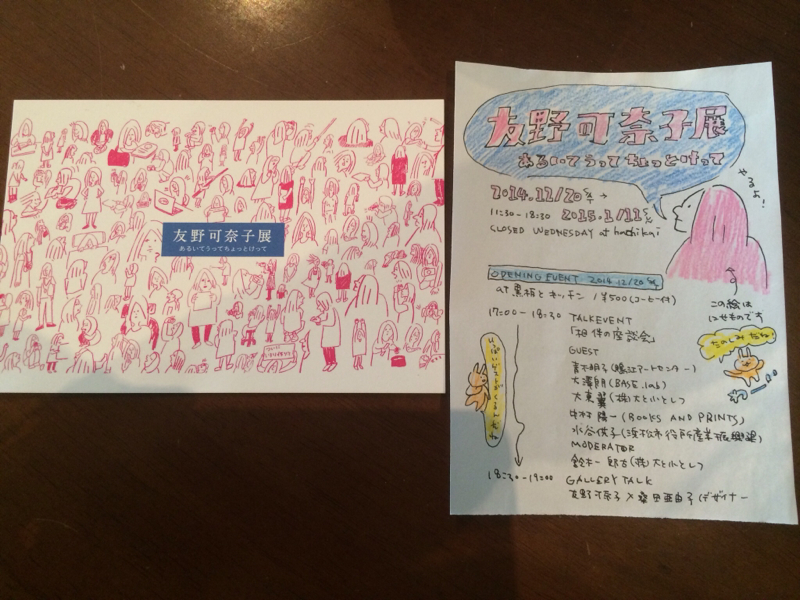 友野可奈子展
あるいてうってちょっとけって
友野可奈子展
あるいてうって ちょっとけって
やるよ!
2014.12/20 →
11:30-18:30 2015.1/12
CLOSED WEDNESDAY at hachikai
OPENING EVENT 2014.12/20
at 黒板とキッチン / ¥500(コーヒー付)
この絵は
にせものです
17:00-18:30 TALKEVENT
「担件の座談会」
たのしみだね!
GUEST
青木明子(鴨江アートセンター)
大澤朗(BASE.lab)
大東翼((株)大と小とレフ
中村陽一(BOOKS AND PRINTS)
水谷供子(浜松市役所産業振興課)
MODERATOR
鈴木一郎太((株)大と小とレフ
いっぱいゲストがくるんだね
18:30-19:00 GALLERY TALK
友野可奈子×桑田亜由子(デザイナー